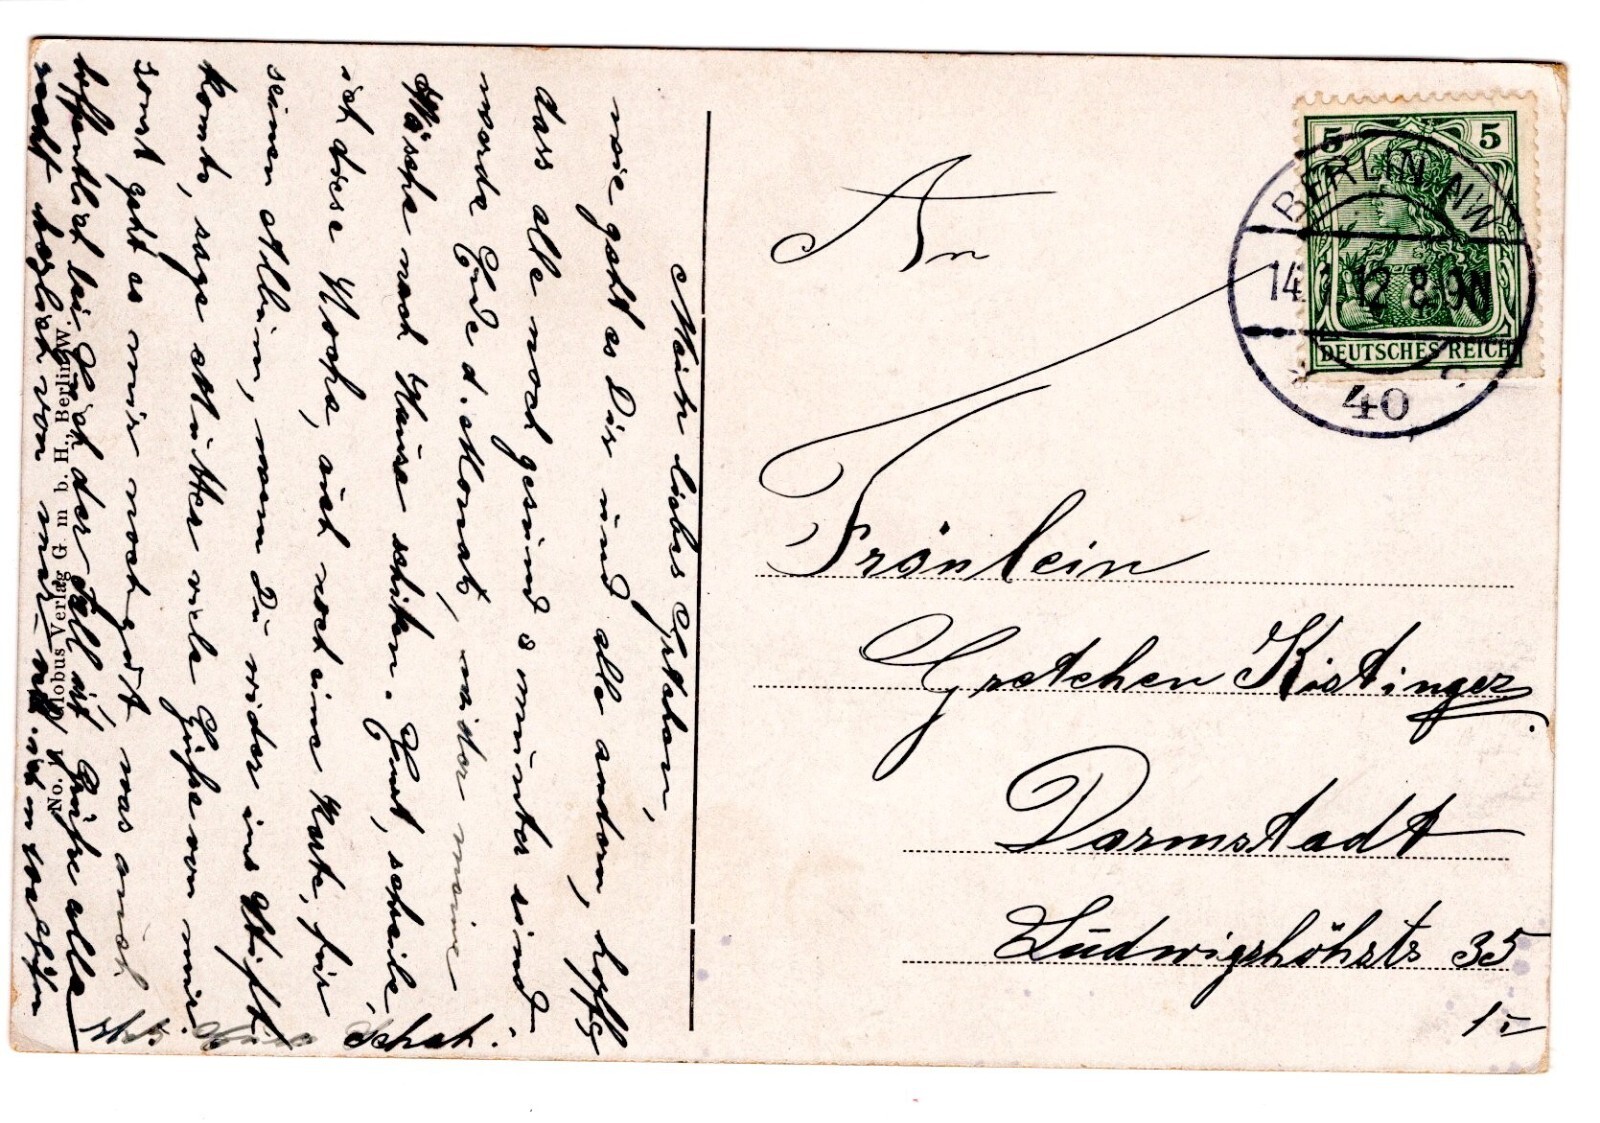 Mein liebes Gretchen,
wie geht es Dir und alle andern, hoffe
dass alle noch gesund u munter sind.
werde Ende d. Monats, wider meine
Wäsche nach Hause schiken. Gust, schreibe
ich diese Woche, auch noch eine Karte, für
seinen Albüm, wenn Du wider ins Stift
komts, sage Mutter viele Grüße von mir.
sonst geht es mir noch gut, was auch
hoffentlich bei Euch der Fall ist Grüße alle
recht herzlich von mir
Schatz.
No. Globus Verlag G. m. b. H., Berlin W.
An
Fräulein
Gretchen Kistinger
Darmstadt
Ludwigshöhsts 35
1-
5 5
DEUTSCHES REICH
BERLIN NW
14.1.12 8-9N
* 40 c